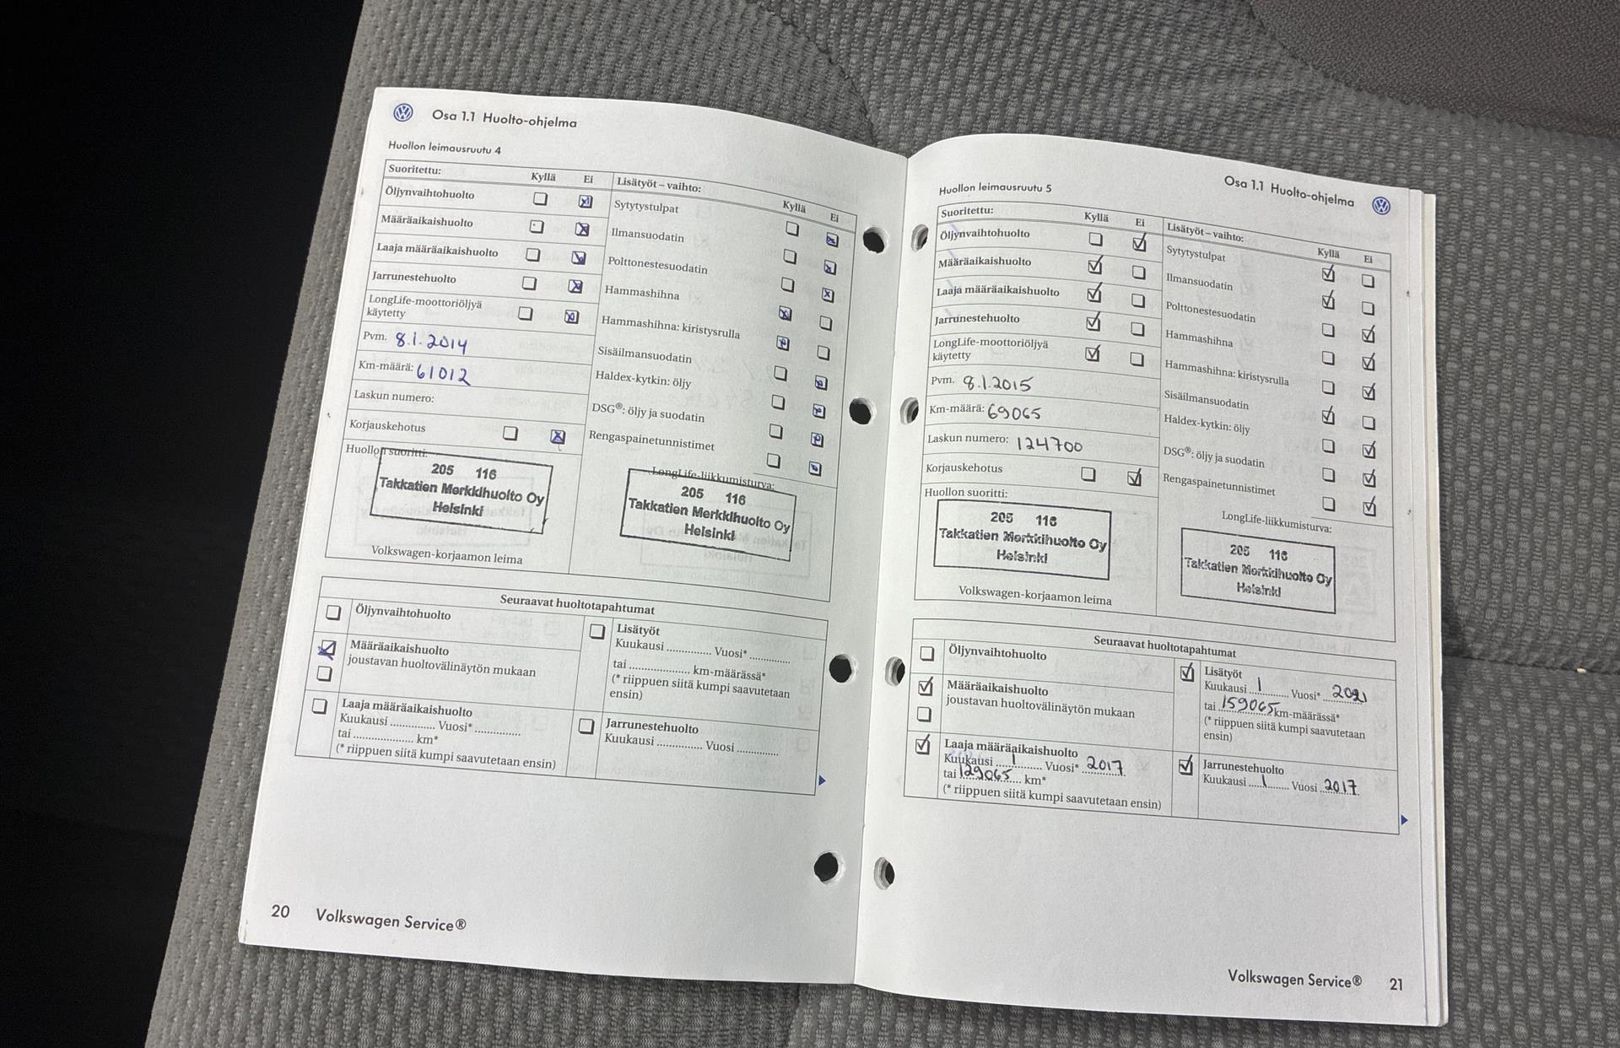 Osa 1.1 Huolto-ohjelma
Huollon leimausruutu 4
Suoritettu: Kyllä Ei
Öljynvaihtohuolto
Määräaikaishuolto
Laaja määräaikaishuolto
Jarrunestehuolto
LongLife-moottoriöljyä
käytetty
Pvm. 8.1.2014
Km-määrä: 61012
Laskun numero:
Korjauskehotus
Huollon suoritti:
205 116
Takkatien Merkkihuolto Oy
Helsinki
Volkswagen-korjaamon leima
Lisätyöt – vaihto: Kyllä Ei
Sytytystulpat
Ilmansuodatin
Polttonestesuodatin
Hammashihna
Hammashihna: kiristysrulla
Sisäilmansuodatin
Haldex-kytkin: öljy
DSG®: öljy ja suodatin
Rengaspainetunnistimet
LongLife-liikkumisturva:
205 116
Takkatien Merkkihuolto Oy
Helsinki
Seuraavat huoltotapahtumat
Öljynvaihtohuolto
Määräaikaishuolto
joustavan huoltovälinäytön mukaan
Laaja määräaikaishuolto
Kuukausi .............. Vuosi* ..............
tai .................. km*
(* riippuen siitä kumpi saavutetaan ensin)
Lisätyöt
Kuukausi .............. Vuosi* ............
tai .................. km-määrässä*
(* riippuen siitä kumpi saavutetaan
ensin)
Jarrunestehuolto
Kuukausi .............. Vuosi .............
20 Volkswagen Service®
Osa 1.1 Huolto-ohjelma
Huollon leimausruutu 5
Suoritettu: Kyllä Ei
Öljynvaihtohuolto
Määräaikaishuolto
Laaja määräaikaishuolto
Jarrunestehuolto
LongLife-moottoriöljyä
käytetty
Pvm. 8.1.2015
Km-määrä: 69065
Laskun numero: 124700
Korjauskehotus
Huollon suoritti:
205 116
Takkatien Merkkihuolto Oy
Helsinki
Volkswagen-korjaamon leima
Lisätyöt – vaihto: Kyllä Ei
Sytytystulpat
Ilmansuodatin
Polttonestesuodatin
Hammashihna
Hammashihna: kiristysrulla
Sisäilmansuodatin
Haldex-kytkin: öljy
DSG®: öljy ja suodatin
Rengaspainetunnistimet
LongLife-liikkumisturva:
205 116
Takkatien Merkkihuolto Oy
Helsinki
Seuraavat huoltotapahtumat
Öljynvaihtohuolto
Määräaikaishuolto
joustavan huoltovälinäytön mukaan
Laaja määräaikaishuolto
Kuukausi 1 Vuosi* 2017
tai 129065 km*
(* riippuen siitä kumpi saavutetaan ensin)
Lisätyöt
Kuukausi 1 Vuosi* 2021
tai 159065 km-määrässä*
(* riippuen siitä kumpi saavutetaan
ensin)
Jarrunestehuolto
Kuukausi 1 Vuosi 2017
Volkswagen Service® 21